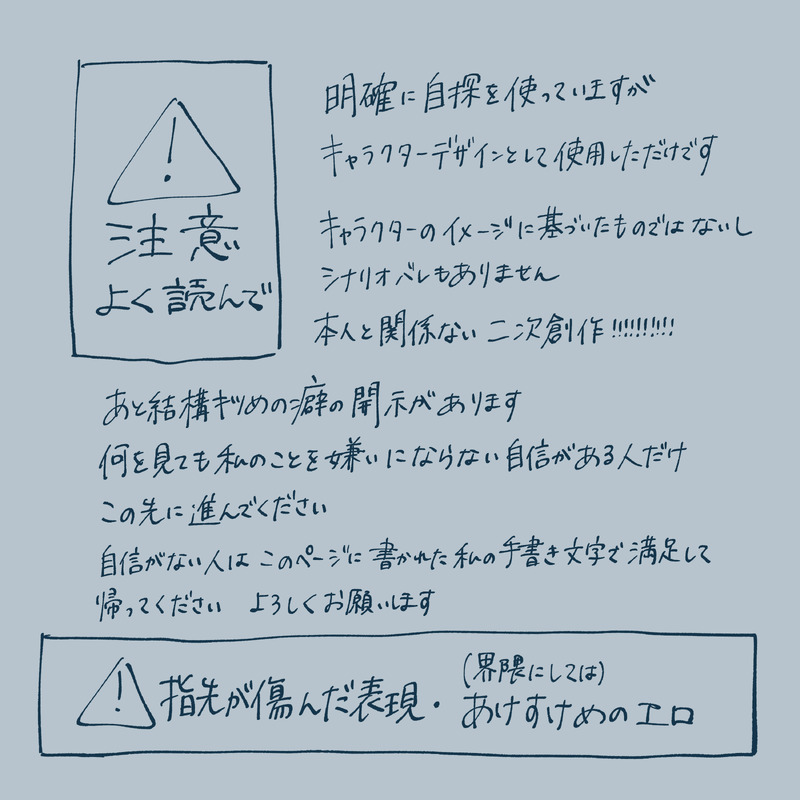 注意
よく読んで
明確に自探を使っていますが
キャラクターデザインとして使用しただけです
キャラクターのイメージに基づいたものではないし
シナリオバレもありません
本人と関係ない二次創作!!!!!!!!!
あと結構キツめの癖の開示があります
何を見ても私のことを嫌いにならない自信がある人だけ
この先に進んでください
自信がない人はこのページに書かれた私の手書き文字で満足して
帰ってください よろしくお願いします
指先が傷んだ表現・
(界隈にしては)
あけすけめのエロ